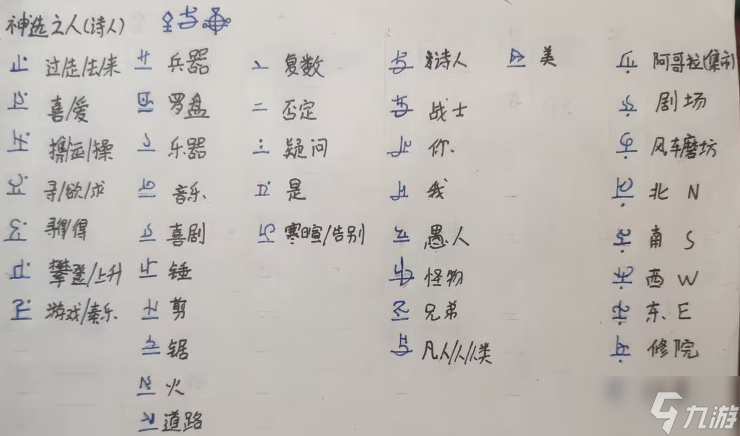 神选之人(诗人)
过/走/去/来 兵器 复数 诗人 美 阿哥拉(集市)
喜/爱 罗盘 否定 战士 剧场
携运/操 乐器 疑问 你 风车磨坊
寻/欲/求 音乐 是 我 北 N
寻得/得 喜剧 寒暄/告别 愚人 南 S
攀登/上升 锤 怪物 西 W
游戏/奏乐 剪 兄弟 东 E
锯 凡人/人/人类 修院
火
道路
九游